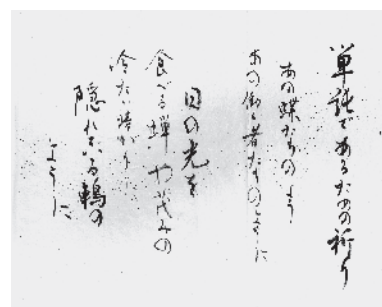 単純であるための祈り
あの蝶たちのよう
あの働く者たちのように
日の光を
食べる蝉や茂みの
冷たい暗がりに
隠れている鶫の
ように